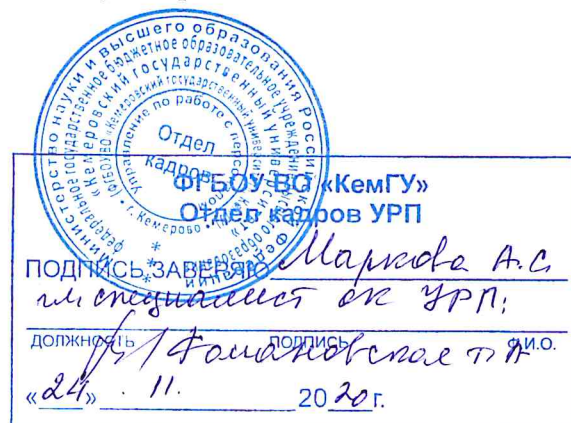 Министерство науки и высшего образования Российской Федерации
федеральное государственное бюджетное образовательное учреждение высшего образования
«Кемеровский государственный университет»
(ФГБОУ ВО «Кемеровский государственный университет», КемГУ) • г. Кемерово
Управление по работе с персоналом
Отдел
кадров
ФГБОУ ВО «КемГУ»
Отдел кадров УРП
ПОДПИСЬ ЗАВЕРЯЮ Маркова А.С
гл. специалист ОК УРП;
ДОЛЖНОСТЬ ПОДПИСЬ Ф.И.О.
«24» . 11. 2020 г.